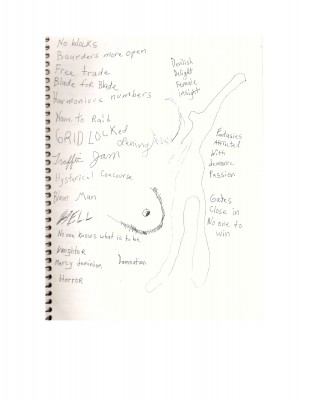 No blocks
Bourders more open
Free trade
Blade for Blade
Harmonics numbers
Name to Rail
GRID LOCKed
Traffic Jam
Hysterical Concourse
Blem Man
HELL
No one knows what is to be
Daughter
Mercy dominion
Horror
Damnation
Devilish
Delight
Female
insight
Fantasies
Attracted
With
demonic
Passion
Gates
Close in
No one to
win